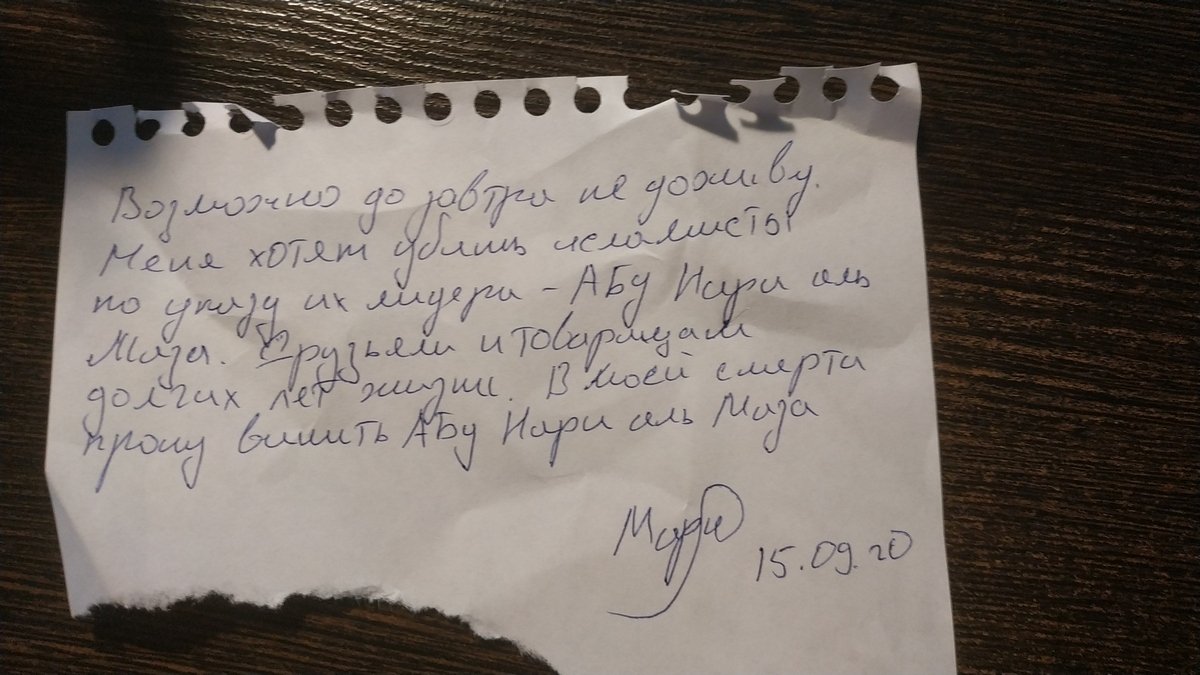 Возможно до завтра не доживу.
Меня хотят убить исламисты
по указу их лидера - АБу Нари аль
Маза. Друзьям и товарищам
долгих лет жизни. В моей смерти
прошу винить АБу Нари аль Маза
15.09.20